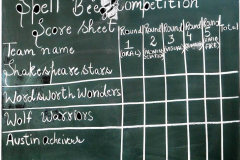 Spell Bee Competition
Score sheet
Team name
Round 1 (ORAL)
Round 2
Round 3 (VISUAL)
Round 4
Round 5
Total
Shakesphare stars
Wordsworth Wonders
Wolf Warriors
Austin achievers